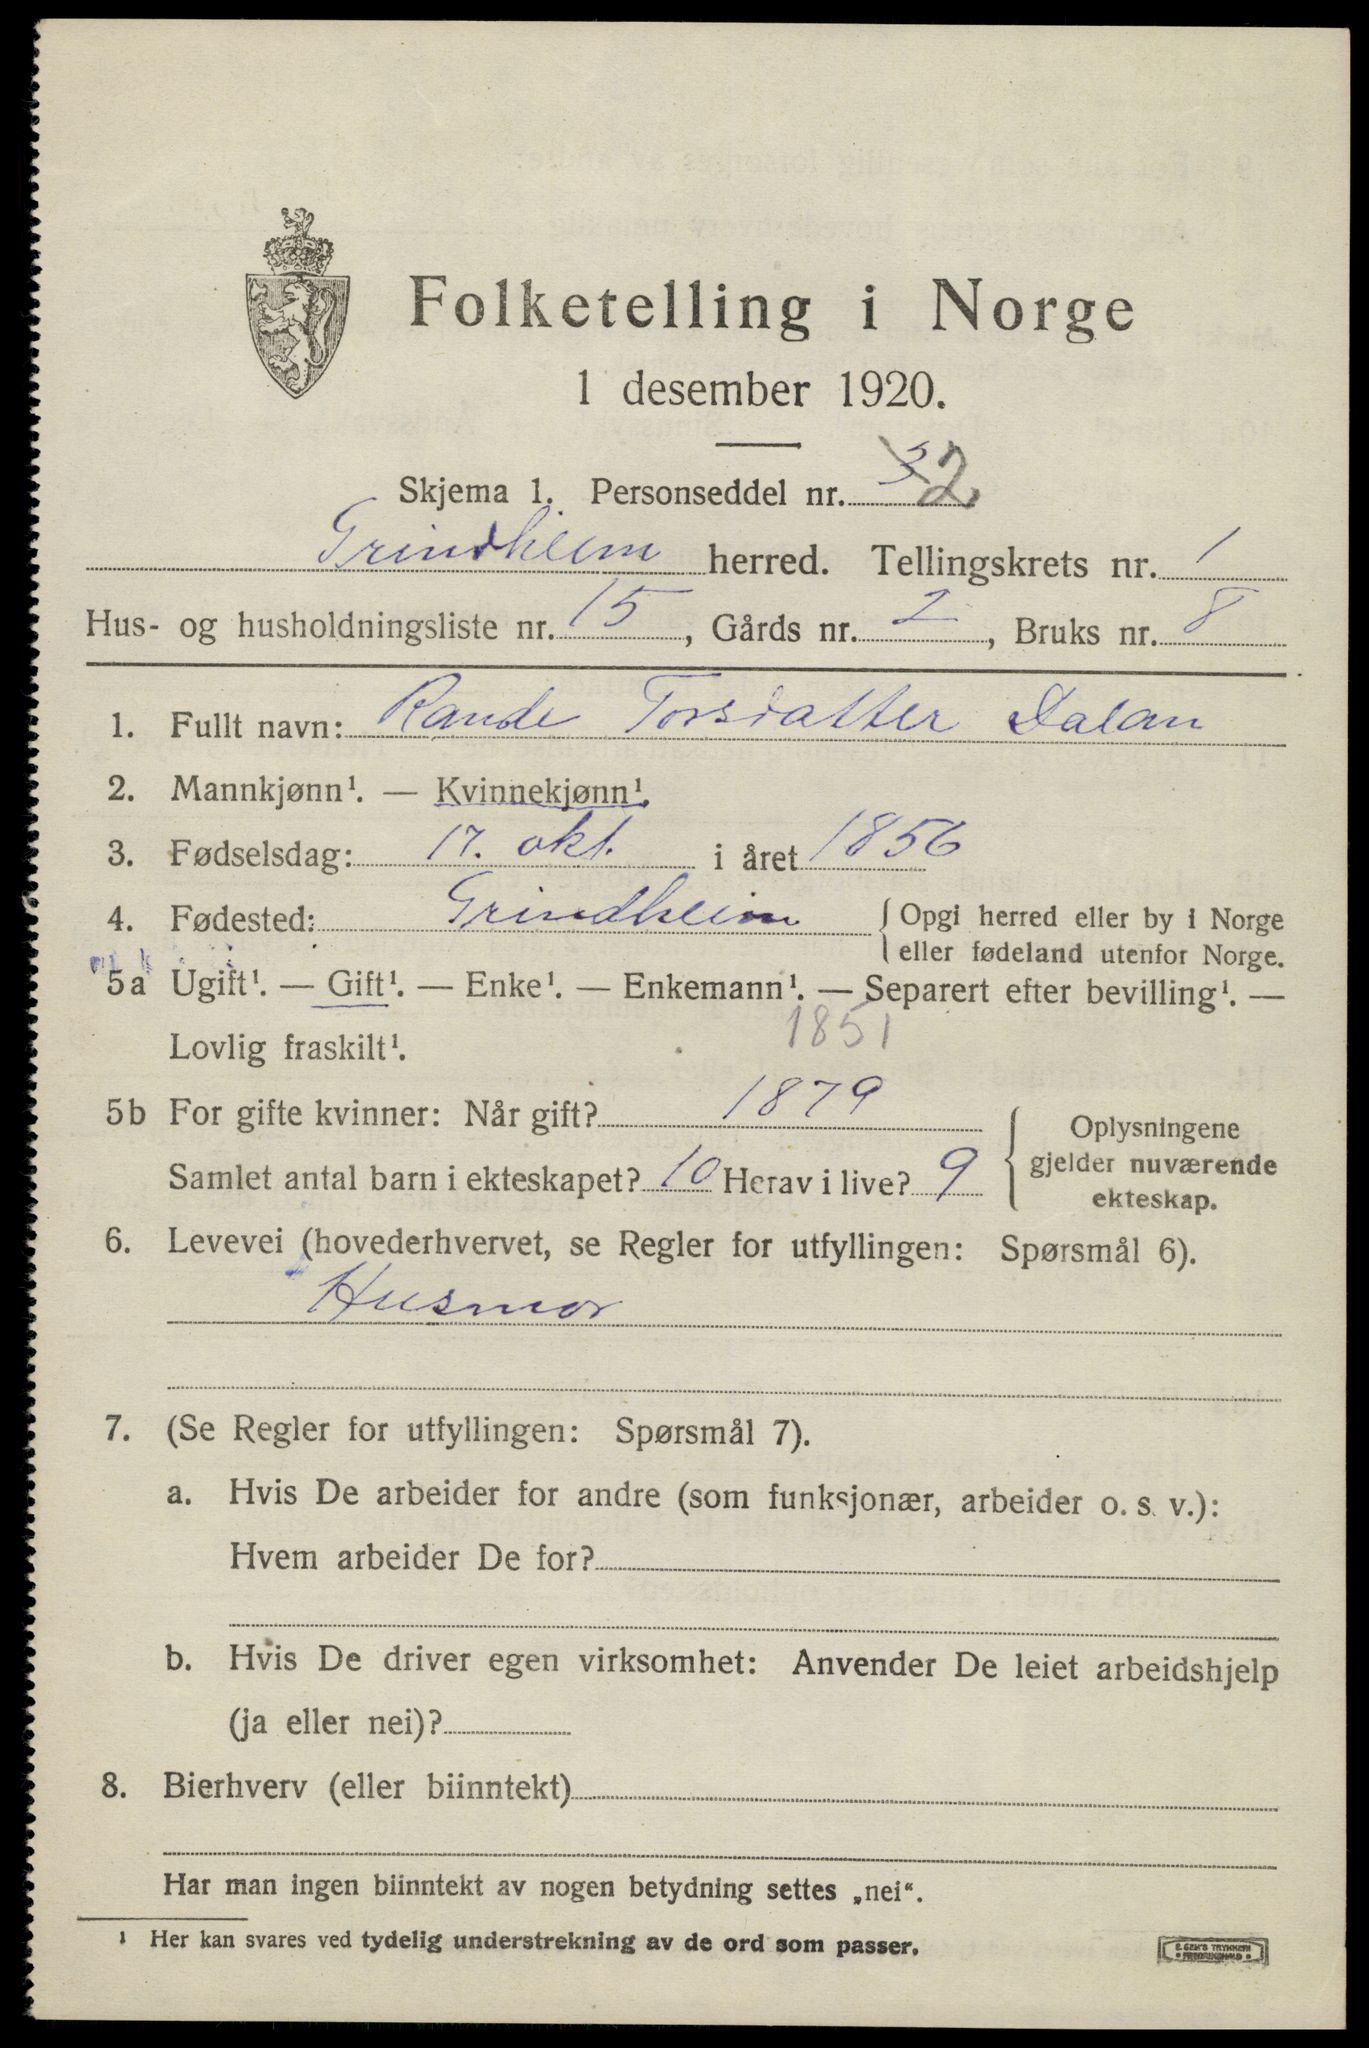 Folketelling i Norge
1 desember 1920.
Skjema 1. Personseddel nr. 3 2
Grindheim herred. Tellingskrets nr. 1
Hus- og husholdningsliste nr. 15, Gårds nr. 2, Bruks nr. 8
1. Fullt navn: Rande Torsdatter Dalan
2. Mannkjønn¹. — Kvinnekjønn¹.
3. Fødselsdag: 17. okt. i året 1856
4. Fødested: Grindheim { Opgi herred eller by i Norge
eller fødeland utenfor Norge.
5a Ugift¹. — Gift¹. — Enke¹. — Enkemann¹. — Separert efter bevilling¹. —
Lovlig fraskilt¹. 1851
5b For gifte kvinner: Når gift? 1879
Samlet antal barn i ekteskapet? 10 Herav i live? 9
Oplysningene
gjelder nuværende
ekteskap.
6. Levevei (hovederhvervet, se Regler for utfyllingen: Spørsmål 6).
Husmor
7. (Se Regler for utfyllingen: Spørsmål 7).
a. Hvis De arbeider for andre (som funksjonær, arbeider o. s. v.):
Hvem arbeider De for?
b. Hvis De driver egen virksomhet: Anvender De leiet arbeidshjelp
(ja eller nei)?
8. Bierhverv (eller biinntekt)
Har man ingen biinntekt av nogen betydning settes „nei“.
¹ Her kan svares ved tydelig understrekning av de ord som passer.